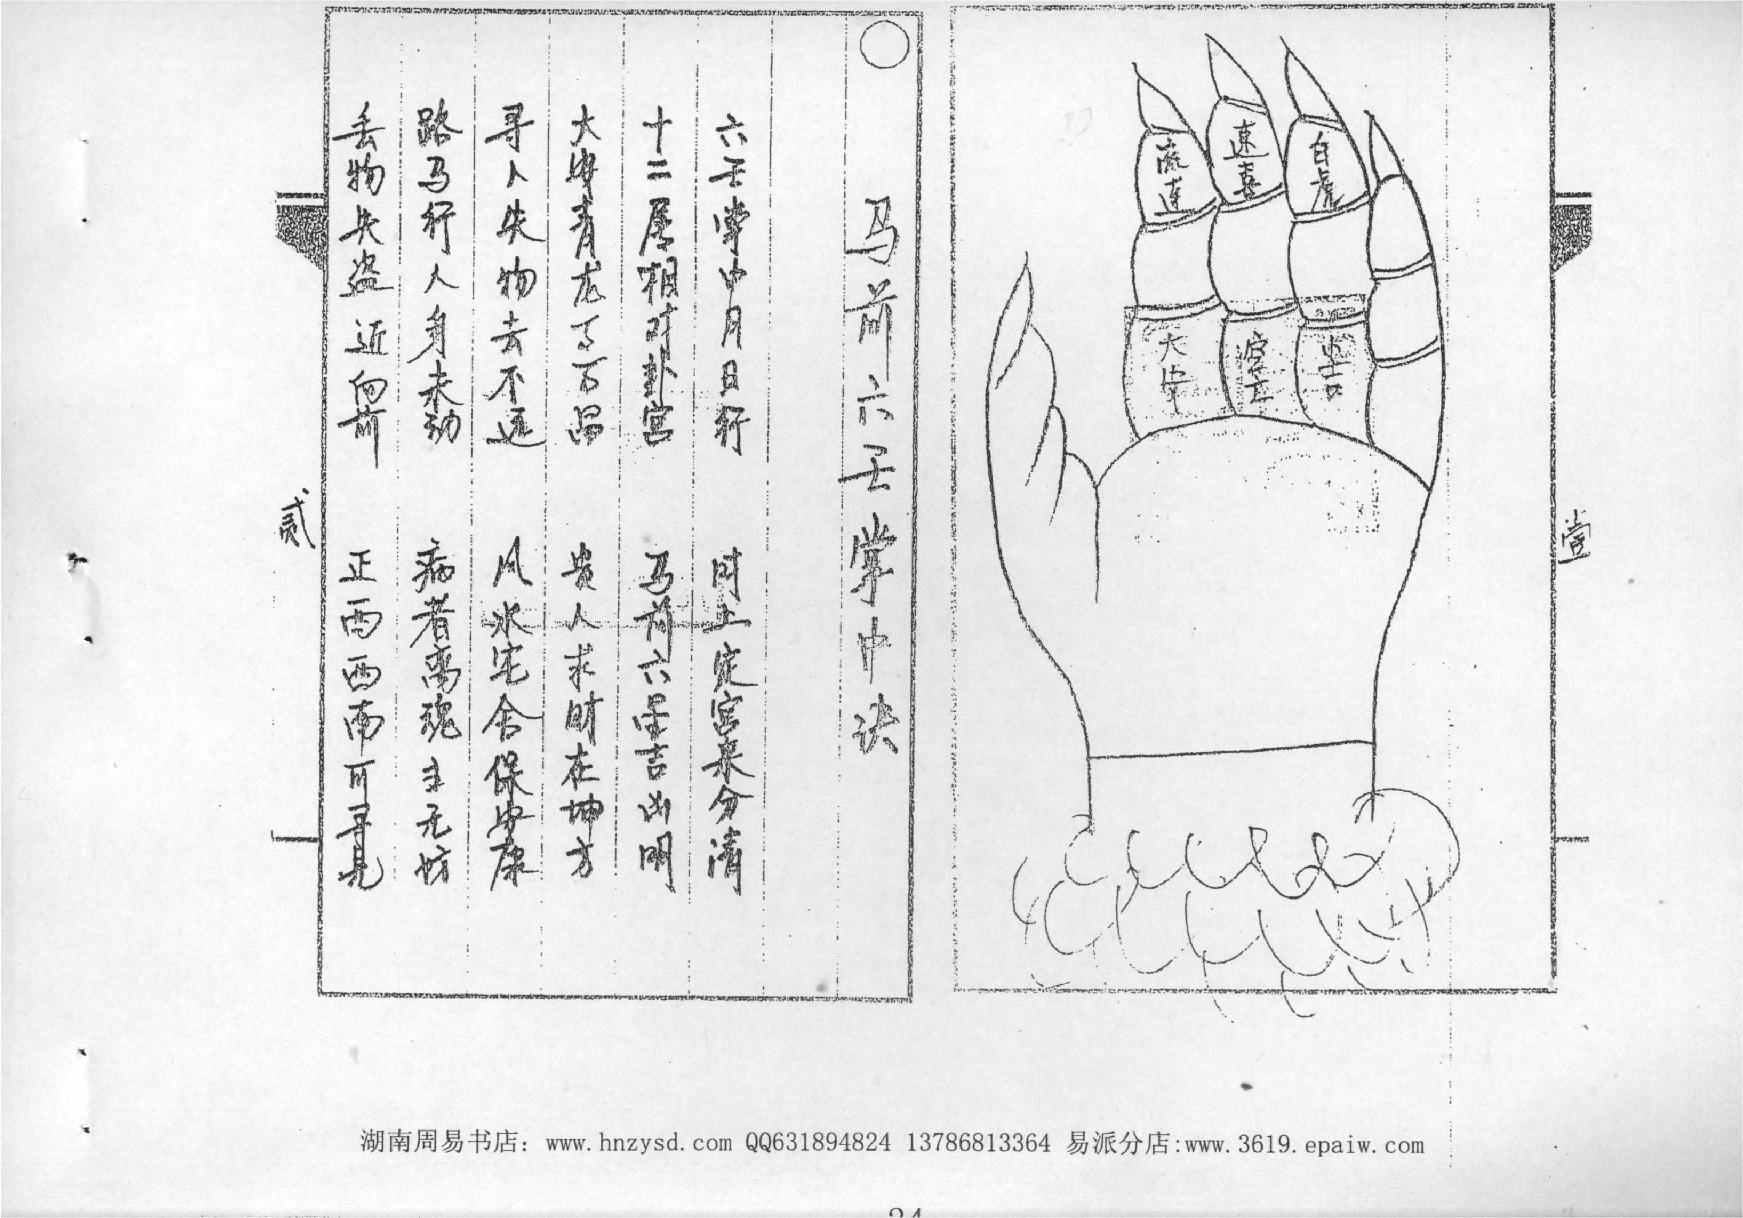 壹
流连
速喜
白虎
大安
空亡
小吉
马前六壬掌中诀
六壬掌中月日行 时上定宫来分清
十二属相对卦宫 马前六壬吉凶明
大安青龙了不品 贵人求财在坤方
寻人失物去不远 风水宅舍保安康
路马行人身未动 病者离魂主无妨
丢物失盗近向前 正西西南可寻见
贰
湖南周易书店：www.hnzysd.com QQ631894824 13786813364 易派分店:www.3619.epaiw.com